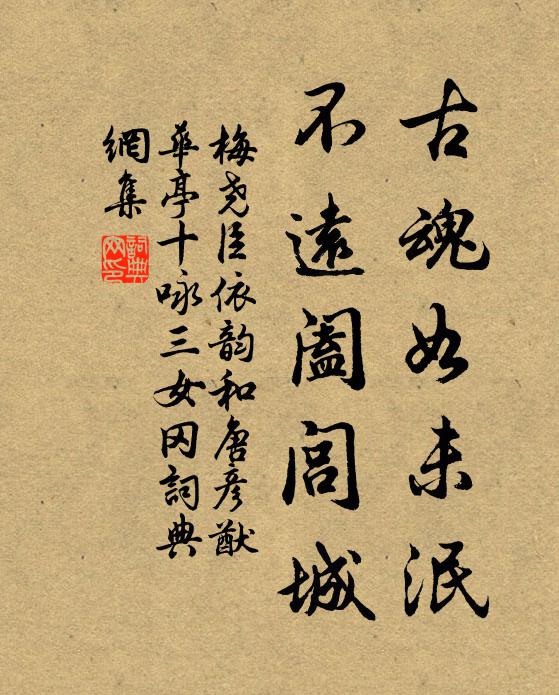 古魂如未泯
不遠闔閭城
梅堯臣依韵和唐彥猷
華亭十咏三女冈詞典
網集
詞典网印